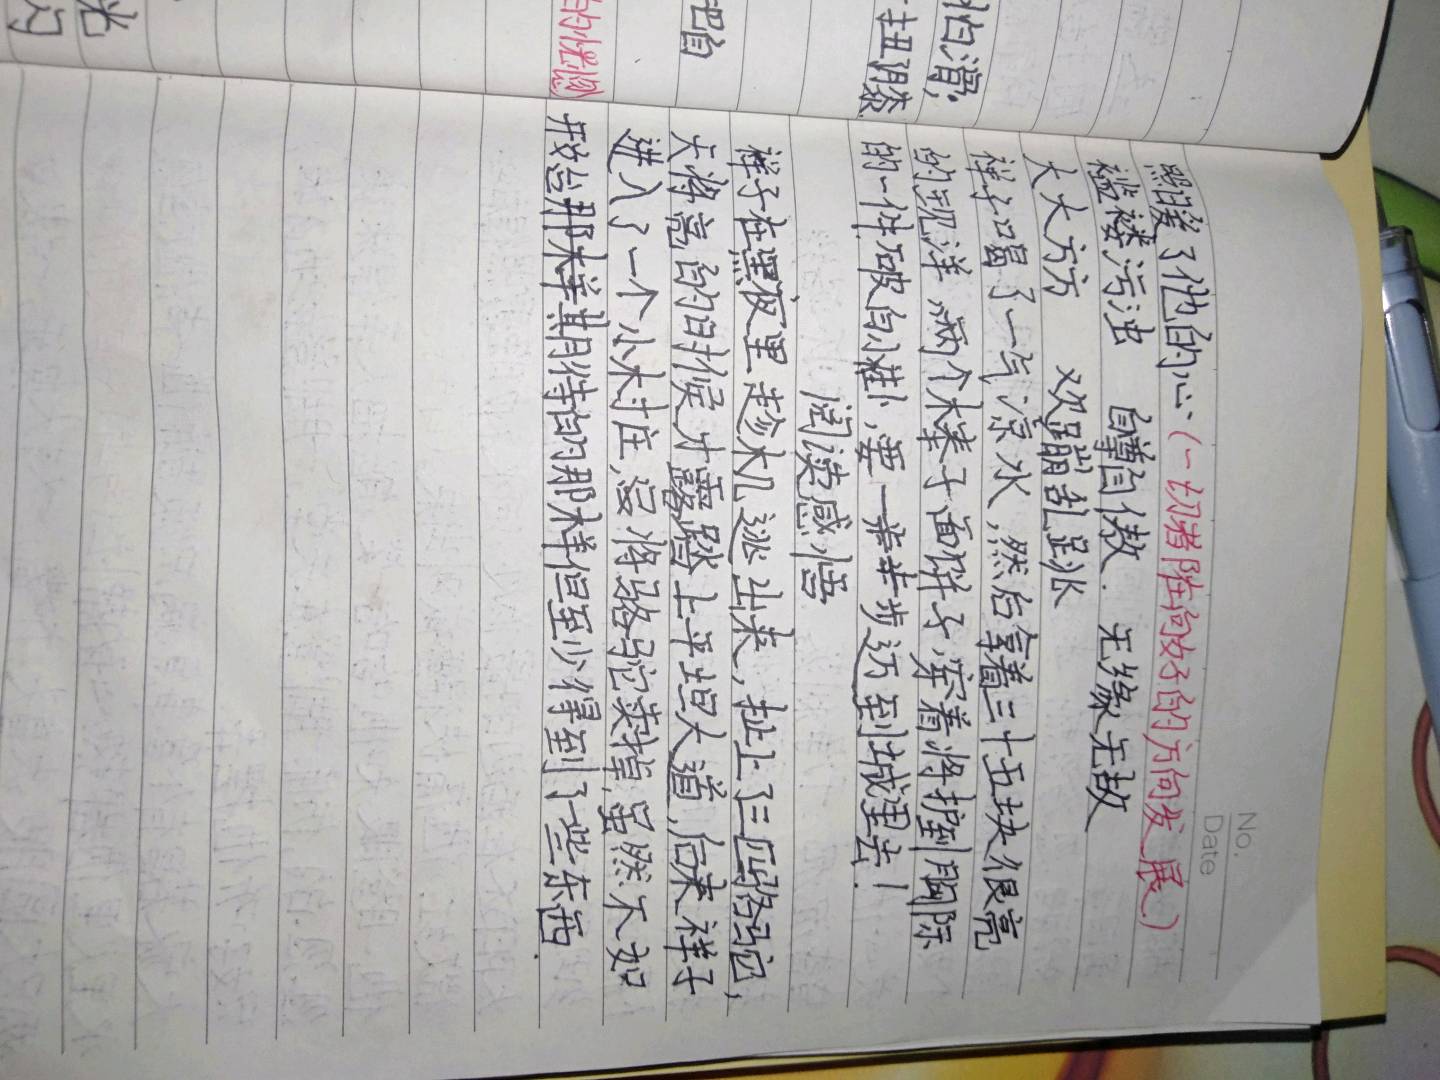 No.
Date
照暖了他的心（一切都在向好的方向发展）
褴褛污浊 自尊自傲 无缘无故
大大方方 欢蹦乱跳
祥子喝了一气凉水，然后拿着三十五块很亮
的现洋，两个棒子面饼子，穿着将护到胸际
的一件破白小褂，要一步步迈到城里去！
阅读感悟
祥子在黑夜里趁机逃出来，扯上了三匹骆驼，
天将亮的时候才踏上平坦大道，后来祥子
进入了一个小村庄，将骆驼卖掉，虽然不如
我当那样期待的那样但至少得到了一些东西.
怕滑，
扭膝